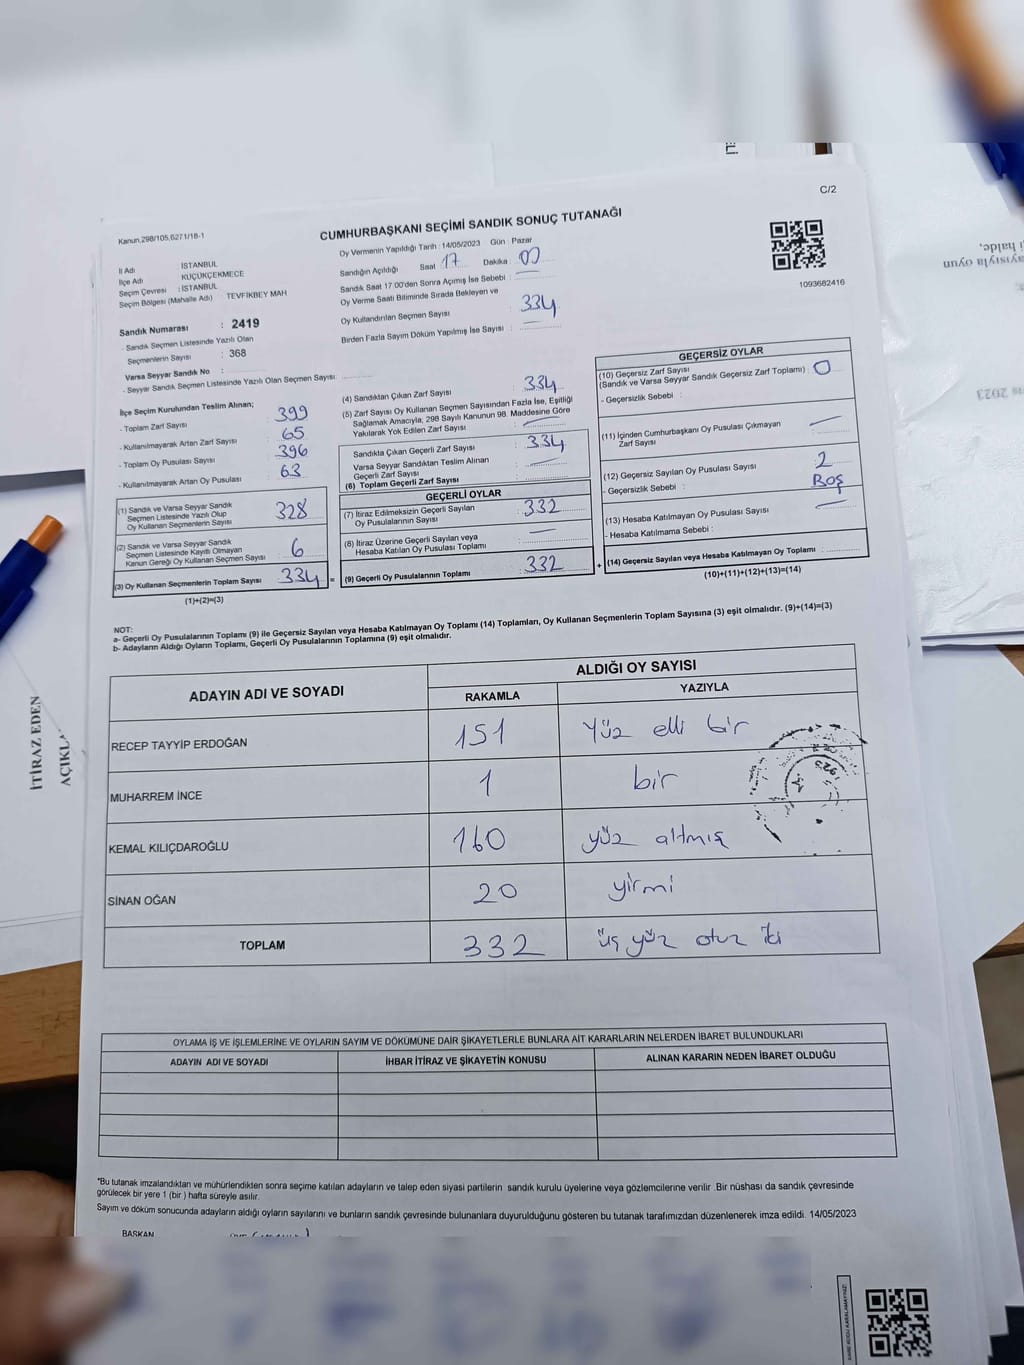 C/2
Kanun,298/105,6271/18-1
CUMHURBAŞKANI SEÇİMİ SANDIK SONUÇ TUTANAĞI
1093682416
İl Adı : İSTANBUL
İlçe Adı : KÜÇÜKÇEKMECE
Seçim Çevresi : İSTANBUL
Seçim Bölgesi (Mahalle Adı) TEVFİKBEY MAH
Sandık Numarası : 2419
- Sandık Seçmen Listesinde Yazılı Olan
Seçmenlerin Sayısı : 368
Varsa Seyyar Sandık No :
- Seyyar Sandık Seçmen Listesinde Yazılı Olan Seçmen Sayısı:
İlçe Seçim Kurulundan Teslim Alınan;
- Toplam Zarf Sayısı : 399
- Kullanılmayarak Artan Zarf Sayısı : 65
- Toplam Oy Pusulası Sayısı : 396
- Kullanılmayarak Artan Oy Pusulası : 63
(1) Sandık ve Varsa Seyyar Sandık
Seçmen Listesinde Yazılı Olup
Oy Kullanan Seçmenlerin Sayısı 328
(2) Sandık ve Varsa Seyyar Sandık
Seçmen Listesinde Kayıtlı Olmayan
Kanun Gereği Oy Kullanan Seçmen Sayısı 6
(3) Oy Kullanan Seçmenlerin Toplam Sayısı 334 =
(1)+(2)=(3)
Oy Vermenin Yapıldığı Tarih : 14/05/2023 Gün : Pazar
Sandığın Açıldığı Saat : 17 Dakika : 00
Sandık Saat 17.00'den Sonra Açılmış İse Sebebi :
Oy Verme Saati Bitiminde Sırada Bekleyen ve
Oy Kullandırılan Seçmen Sayısı : 334
Birden Fazla Sayım Döküm Yapılmış İse Sayısı :
(4) Sandıktan Çıkan Zarf Sayısı : 334
(5) Zarf Sayısı Oy Kullanan Seçmen Sayısından Fazla İse, Eşitliği
Sağlamak Amacıyla; 298 Sayılı Kanunun 98. Maddesine Göre
Yakılarak Yok Edilen Zarf Sayısı :
Sandıkta Çıkan Geçerli Zarf Sayısı : 334
Varsa Seyyar Sandıktan Teslim Alınan
Geçerli Zarf Sayısı :
(6) Toplam Geçerli Zarf Sayısı :
GEÇERLİ OYLAR
(7) İtiraz Edilmeksizin Geçerli Sayılan
Oy Pusulalarının Sayısı : 332
(8) İtiraz Üzerine Geçerli Sayılan veya
Hesaba Katılan Oy Pusulası Toplamı :
(9) Geçerli Oy Pusulalarının Toplamı : 332 +
GEÇERSİZ OYLAR
(10) Geçersiz Zarf Sayısı
(Sandık ve Varsa Seyyar Sandık Geçersiz Zarf Toplamı) : 0
- Geçersizlik Sebebi :
(11) İçinden Cumhurbaşkanı Oy Pusulası Çıkmayan
Zarf Sayısı :
(12) Geçersiz Sayılan Oy Pusulası Sayısı : 2
- Geçersizlik Sebebi : Boş
(13) Hesaba Katılmayan Oy Pusulası Sayısı :
- Hesaba Katılmama Sebebi :
(14) Geçersiz Sayılan veya Hesaba Katılmayan Oy Toplamı :
(10)+(11)+(12)+(13)=(14)
NOT:
a- Geçerli Oy Pusulalarının Toplamı (9) ile Geçersiz Sayılan veya Hesaba Katılmayan Oy Toplamı (14) Toplamları, Oy Kullanan Seçmenlerin Toplam Sayısına (3) eşit olmalıdır. (9)+(14)=(3)
b- Adayların Aldığı Oyların Toplamı, Geçerli Oy Pusulalarının Toplamına (9) eşit olmalıdır.
ADAYIN ADI VE SOYADI
ALDIĞI OY SAYISI
RAKAMLA YAZIYLA
RECEP TAYYİP ERDOĞAN 151 Yüz elli bir
MUHARREM İNCE 1 bir
KEMAL KILIÇDAROĞLU 160 yüz altmış
SİNAN OĞAN 20 yirmi
TOPLAM 332 üç yüz otuz iki
OYLAMA İŞ VE İŞLEMLERİNE VE OYLARIN SAYIM VE DÖKÜMÜNE DAİR ŞİKAYETLERLE BUNLARA AİT KARARLARIN NELERDEN İBARET BULUNDUKLARI
ADAYIN ADI VE SOYADI İHBAR İTİRAZ VE ŞİKAYETİN KONUSU ALINAN KARARIN NEDEN İBARET OLDUĞU
*Bu tutanak imzalandıktan ve mühürlendikten sonra seçime katılan adayların ve talep eden siyasi partilerin sandık kurulu üyelerine veya gözlemcilerine verilir .Bir nüshası da sandık çevresinde
görülecek bir yere 1 (bir ) hafta süreyle asılır.
Sayım ve döküm sonucunda adayların aldığı oyların sayılarını ve bunların sandık çevresinde bulunanlara duyurulduğunu gösteren bu tutanak tarafımızdan düzenlenerek imza edildi. 14/05/2023
BAŞKAN
İTİRAZ EDEN